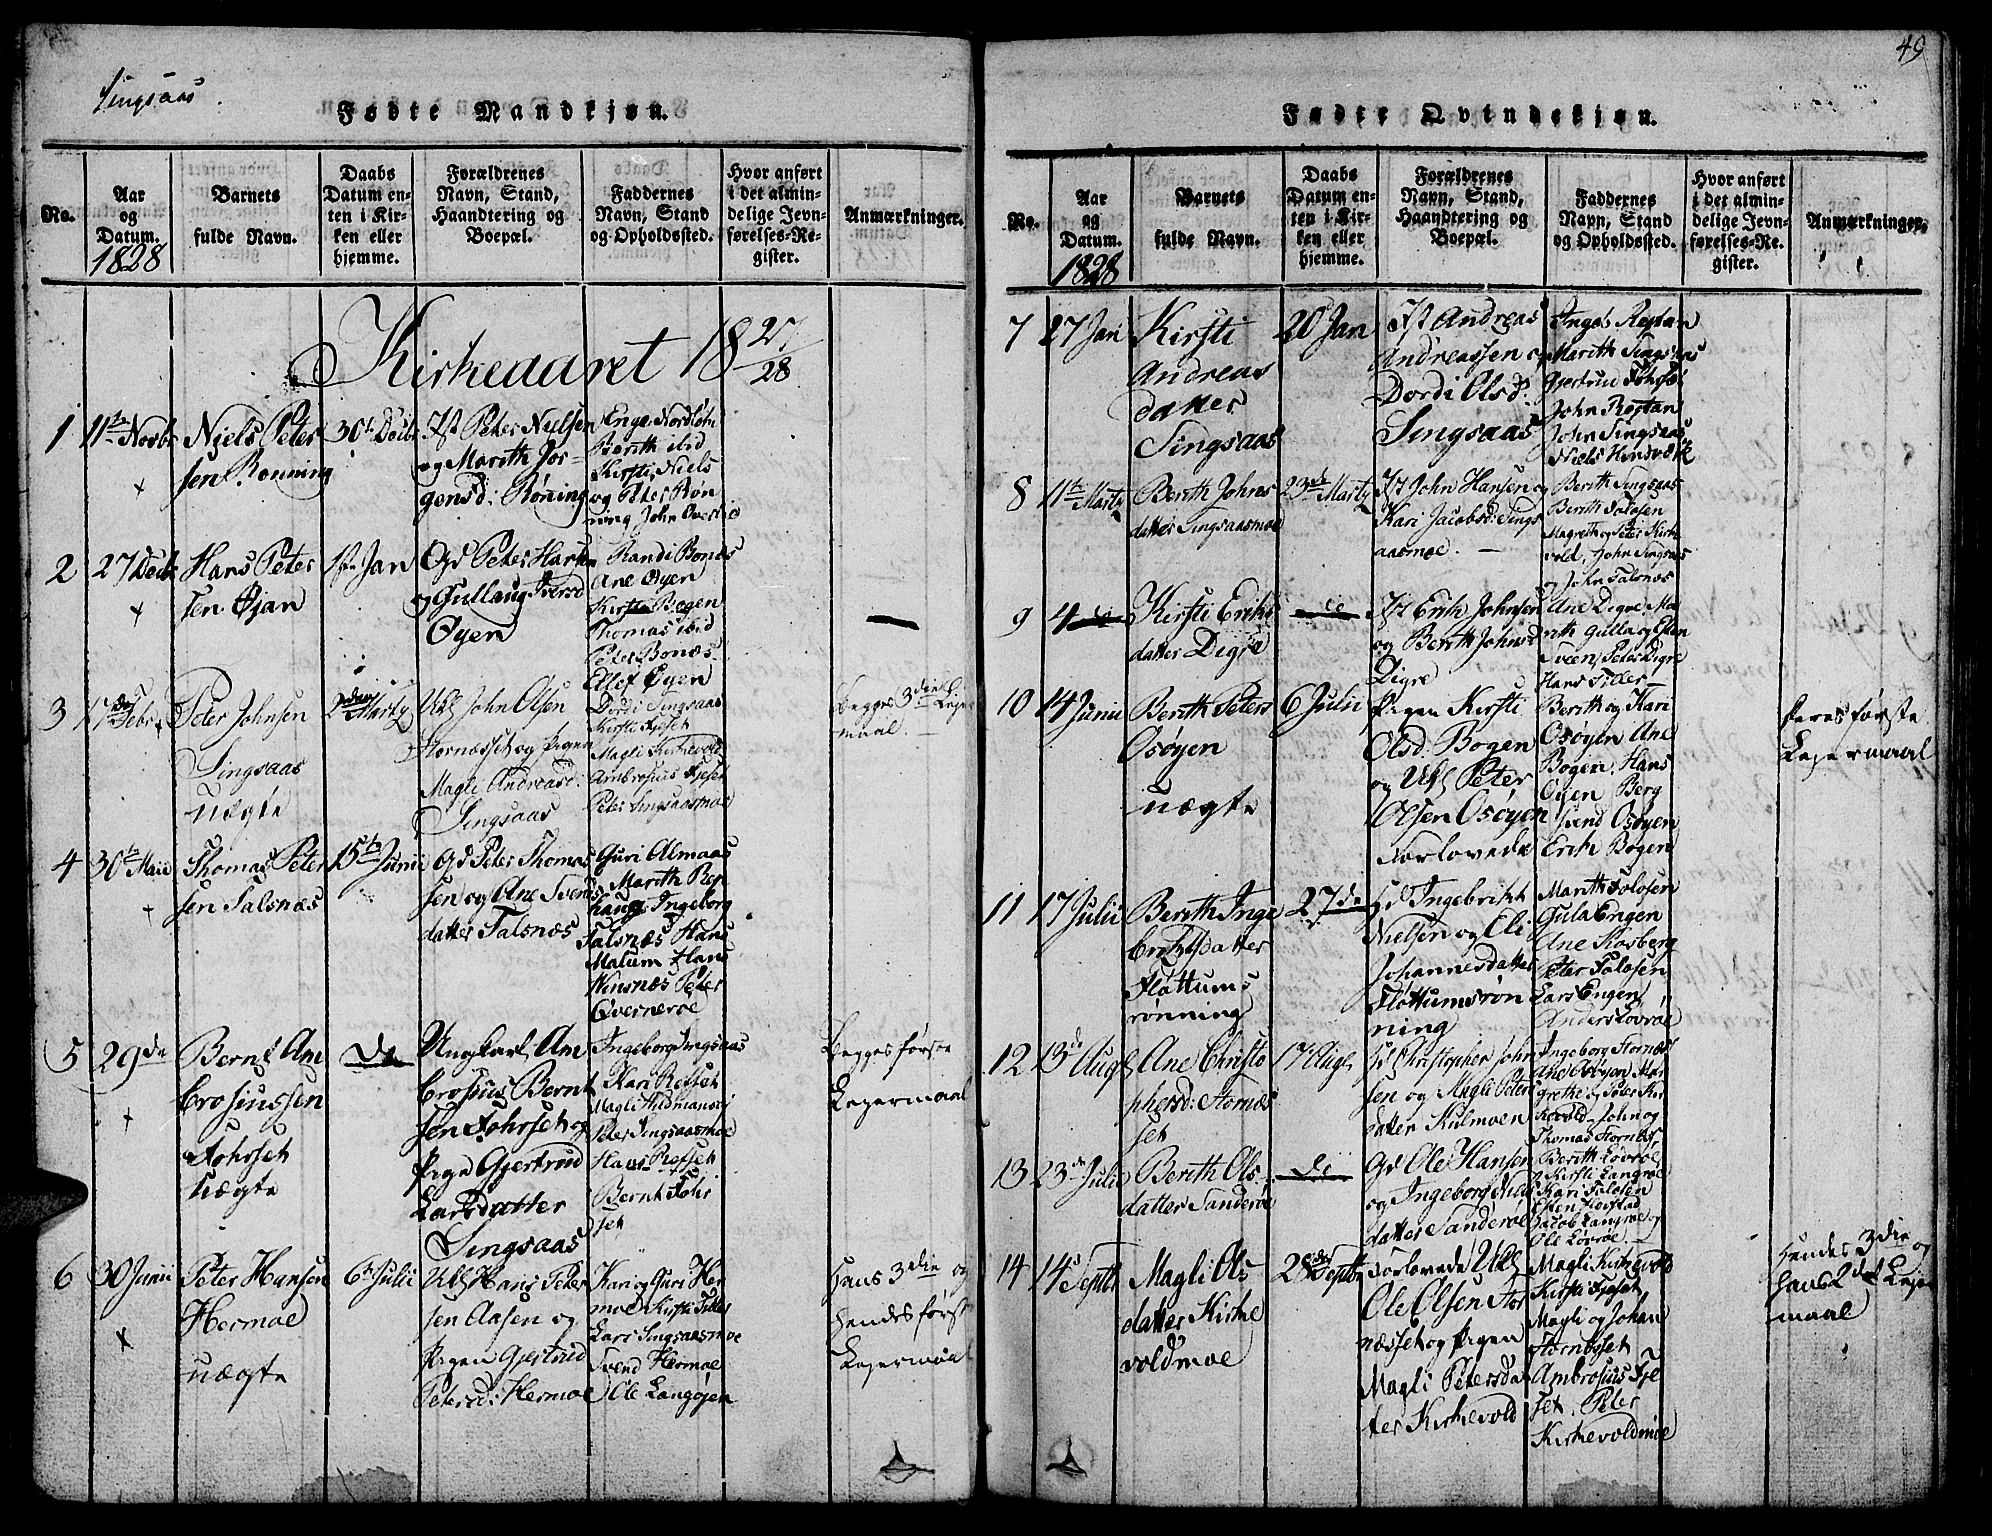 Singsaas.
Fødte Mandkjøn.
No.
Aar
og
Datum.
1828
Barnets
fulde Navn.
Daabs
Datum en-
ten i Kir-
ken eller
hjemme.
Forældrenes
Navn, Stand,
Haandtering og
Boepæl.
Faddernes
Navn, Stand
og Opholdssted.
Hvor anført
i det almin-
delige Jevn-
førelses-Re-
gister.
Anmærkninger.
Kirkeaaret 18 27/28
1
11te Novbr
Niels Peter
sen Rønning
30te Decbr
Ist Peter Nielsen
og Marith Jør-
gensd: Røning
Berith ibid
Kirsti, Niels
og Peter Røn
ning John
2
27 Decbr
Hans Peter
sen Øjan
1ste Jan
Gd Peter Hansen
og Gullaug Iversd
Øyen
Randi Bonæs
Ane Øyen
Kirsti Bogen
Thomas ibid
Peter Bonæs
Ellef Øyen
3
17de Febr
Peter Johnsen
Singsaas
uægte
2den Marty
Uk John Olsen
Stornæsset og Pigen
Magli Andreasd:
Singsaas
Dordi Singsaas
Kirsti Fjeset
Magli Kirkevold
Ambrosius Fjeset
Peter Singsaasmoe
Begges 3die Leger
maal.
4
30te Maii
Thomas Peter
sen Talsnæs
15te Junii
Gd Peter Thomas
sen og Ane Svends
datter Talsnæs
Guri Almaas
Marith Rep
haug Ingeborg
Talsnæs Hans
Malum Hans
Winsnæs Peter
Qverneroe
5
29de
Bernt Am
brosiussen
Fohrset
Uægte
De
Ungkarl Am
brosius Bernt
sen Fohrset og
Pige Gjertrud
Larsdatter
Singsaas
Ingeborg Singsaas
Kari Refset
Magli Hildmansøi
Peter Singsaasmoe
Hans Refset
Bernt Fohr
set
Begges første
Legermaal
6
30 Junii
Peter Hansen
Hermoe
uægte
6te Julii
Uk Hans Peter
sen Aasen og
Pigen Gjertrud
Petersd: Hermoe
Kari og Guri Her
moe Kirsti Tiller
Lars Singsaasmoe
Svend Hermoe
Ole Langøjen
Hans 3die og
hendes først
Legermaal
49
Fødte Qvindekjøn.
No.
Aar
og
Datum.
1828
Barnets
fulde Navn.
Daabs
Datum en-
ten i Kir-
ken eller
hjemme.
Forældrenes
Navn, Stand,
Haandtering og
Boepæl.
Faddernes
Navn, Stand
og Opholdssted.
Hvor anført
i det almin-
delige Jevn-
førelses-Re-
gister.
Anmærkninger.
7
27 Jan
Kirsti
Andreas
datter
Singsaas
20 Jan
Ist Andreas
Andreassen og
Dordi Olsd:
Singsaas
Ingeb Rogstan
Marith Singsaas
Gjertrud Fohrset
John Rogstan
John Singsaas
Niels
8
11te Marty
Berith Johns
datter Singsaasmoe
23de Marty
Ist John Hansen og
Kari Jacobsd: Sings
aasmoe.
Berith Singsaas
Berith Folosen
Magreth og Peter Kirke
vold, John Singsaas
og John Talsnæs
9
4 de
Kirsti Eriks
datter Digre
de
Ist Erik Johnsen
og Berith Johnsd
Digre
Ane Digre Ma
rith Gulla og Esten
Sveen, Peter Digre
Hans Tiller
10
14 Junii
Berith Peters
Osøyen
uægte
6 Julii
Pigen Kirsti
Olsd: Bogen
og Uk Peter
Olsen Osøyen
Forlovede
Berith og Kari
Osøyen Ane
Bogen, Hans
Oyen Berg
svend Osøyen
Erik Bogen
Peres første
Legermaal
11
17 Julii
Berith Inge
brikts datter
Fløttums
rønning
27de
Gd Ingebrikt
Nielsen og Eli
Johannesdatter
Fløttumsrøn
ning
Marith Folosen
Gula Engen
Ane Kosberg
Peter Folosen
Lars Engen
Anders Løvrøe
12
13de Aug
Ane Christo
phersd: Stornæs
set
17 Aug
Gd Christopher John
sen og Magli Peters
datter Kulmoen
Ingeborg Stornæs
Ane Osøyan Mar
grethe og Peter Kir
kevold, John og
Thomas Stornæs
13
23de Julii
Berith Ols
datter Sanderøe
De
Gd Ole Hansen
og Ingeborg Niels
datter Sanderøe
Berith Løvrøe
og Kirsti Langrøe
Kari Folosen
Esten Hovstad
Jacob Langrøe og
Ole Løvrøe
14
14 Septb
Magli Ols
datter Kirke
voldmoe
28de Septb
Forlovede Uk
Ole Olsen Stor
næsset og Pigen
Magli Petersda
ter Kirkevold
Magli Kirkevold
Kirsti Fjeset,
Magli og Johan
Stornæsset
Ambrosius Fje
set. Peter
Kirkevoldmoe
Hendes 3die og
hans 2det Leger
maal